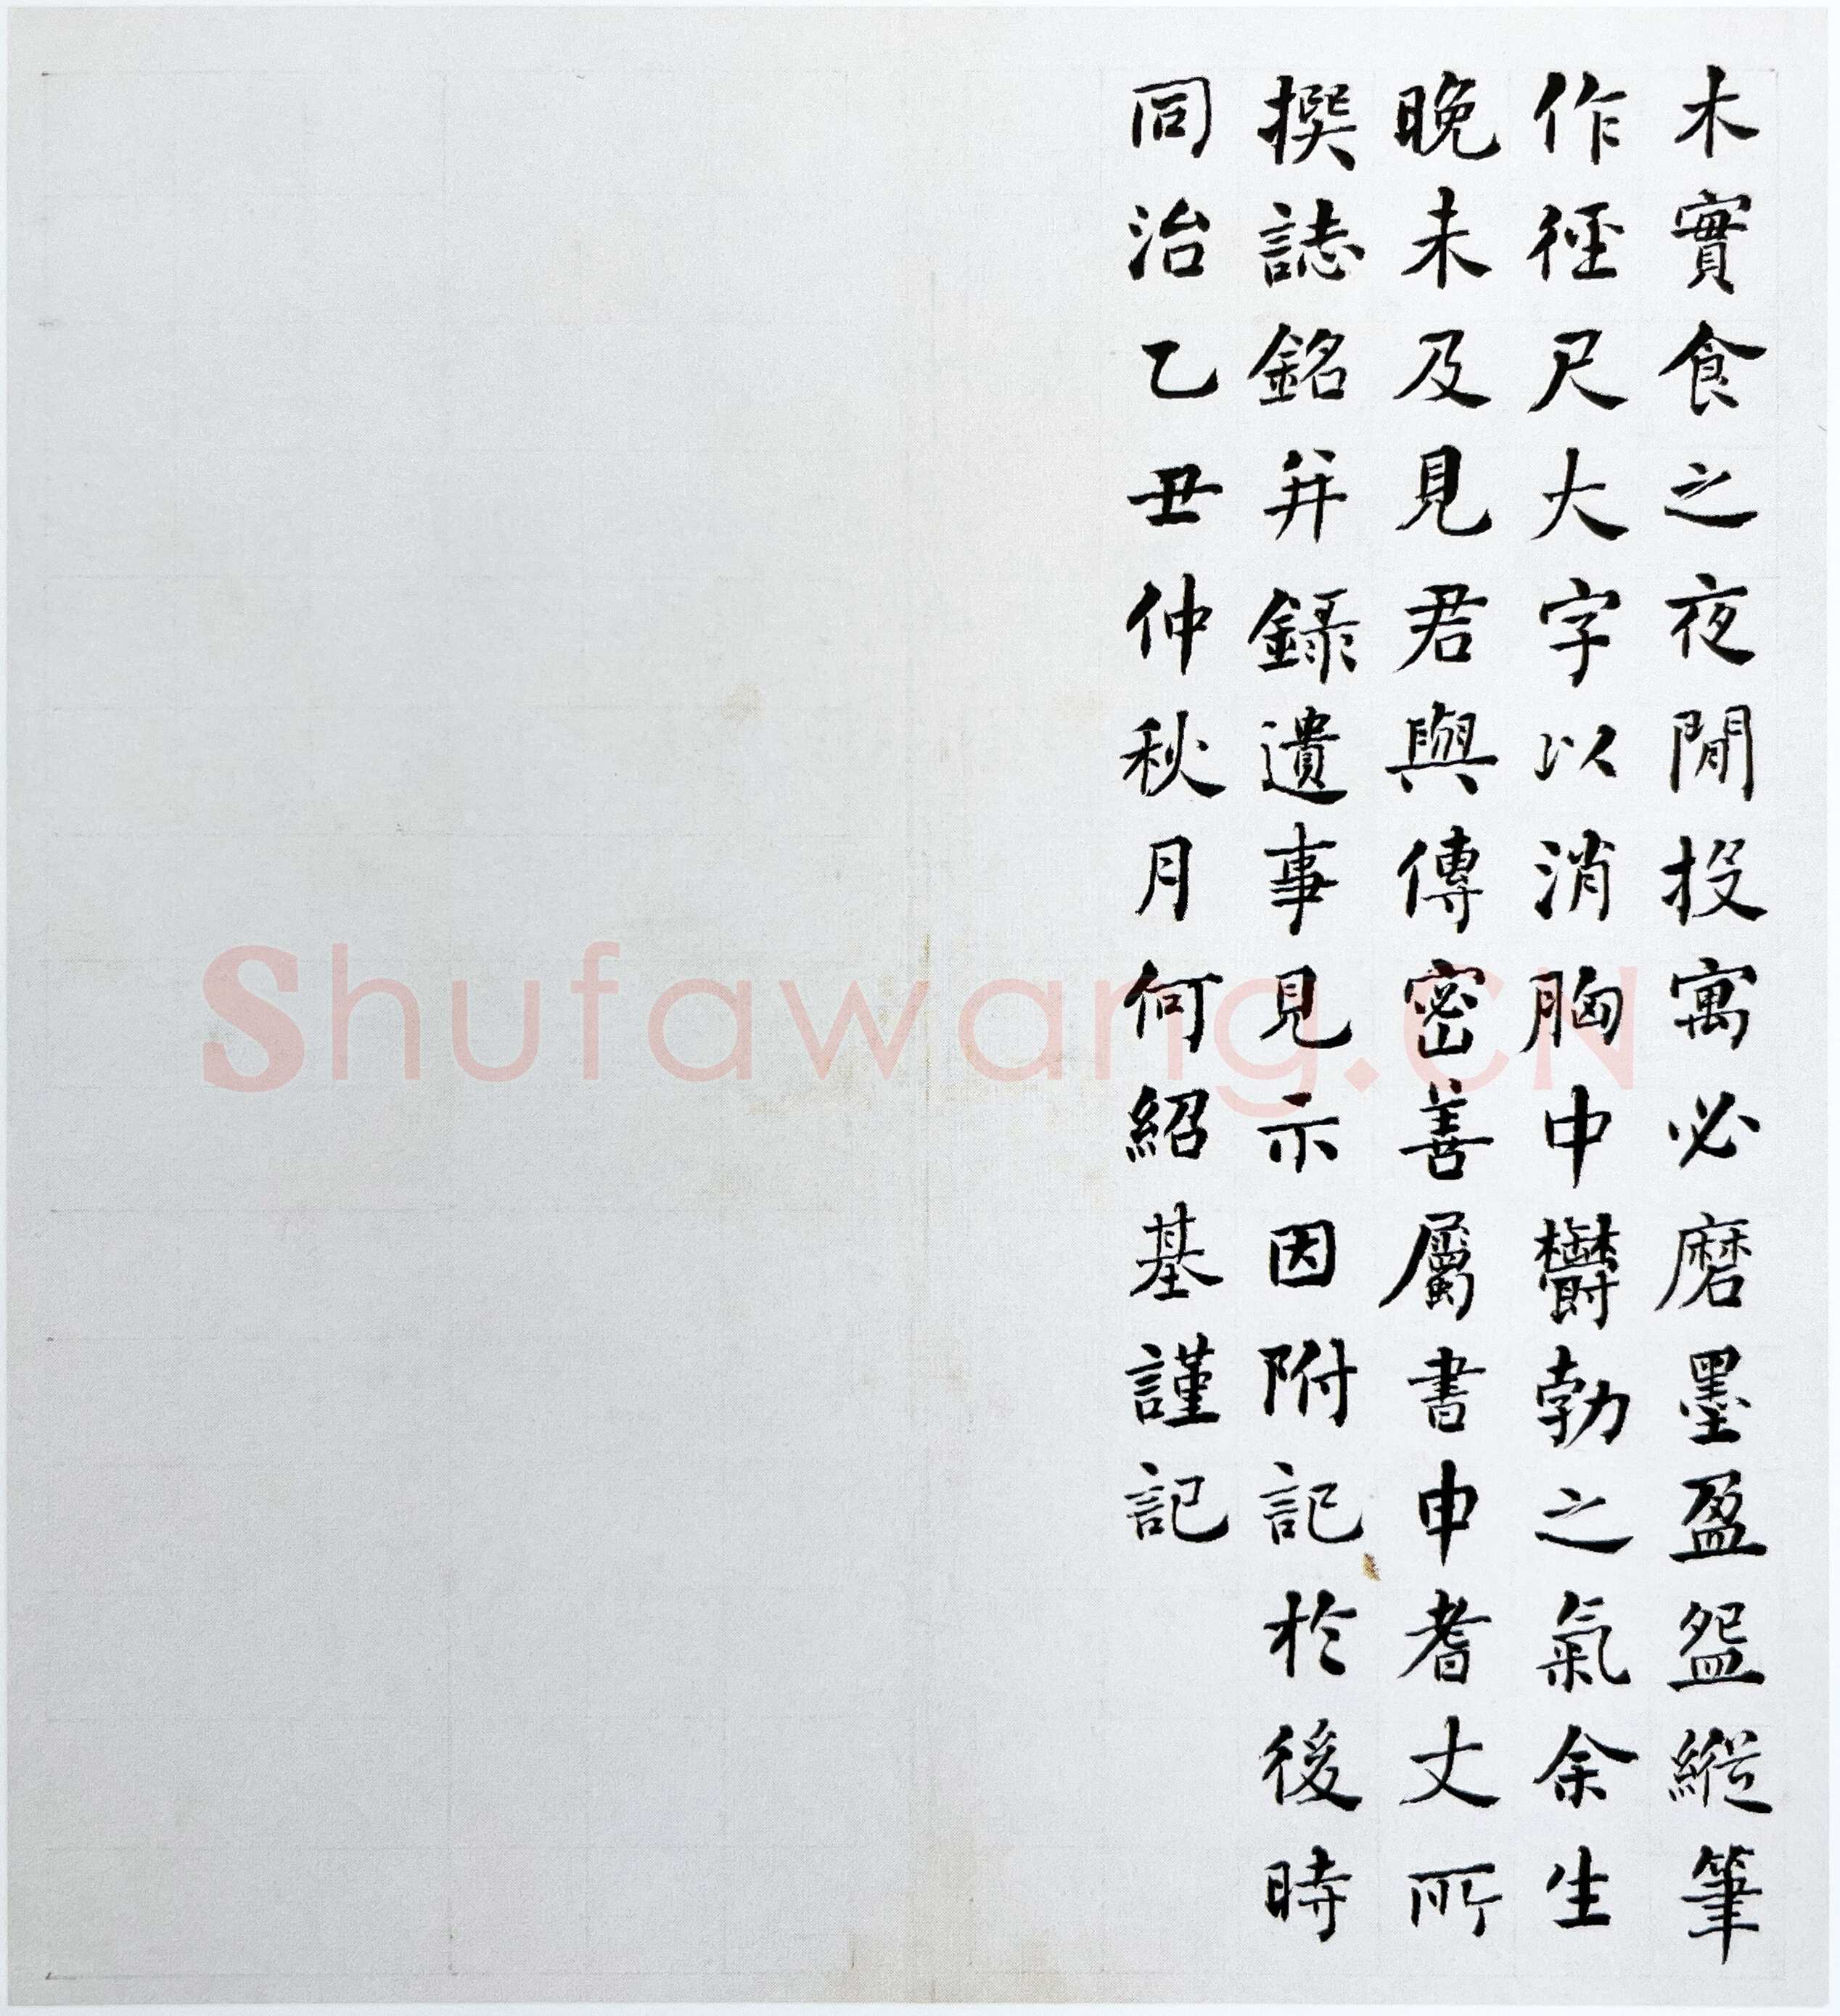 木實食之夜閒投寓必磨墨盈盌縱筆
作徑尺大字以消胸中鬱勃之氣余生
晚未及見君與傳密善屬書申耆丈所
撰誌銘并錄遺事見示因附記於後時
同治乙丑仲秋月何紹基謹記
Shufawang.CN